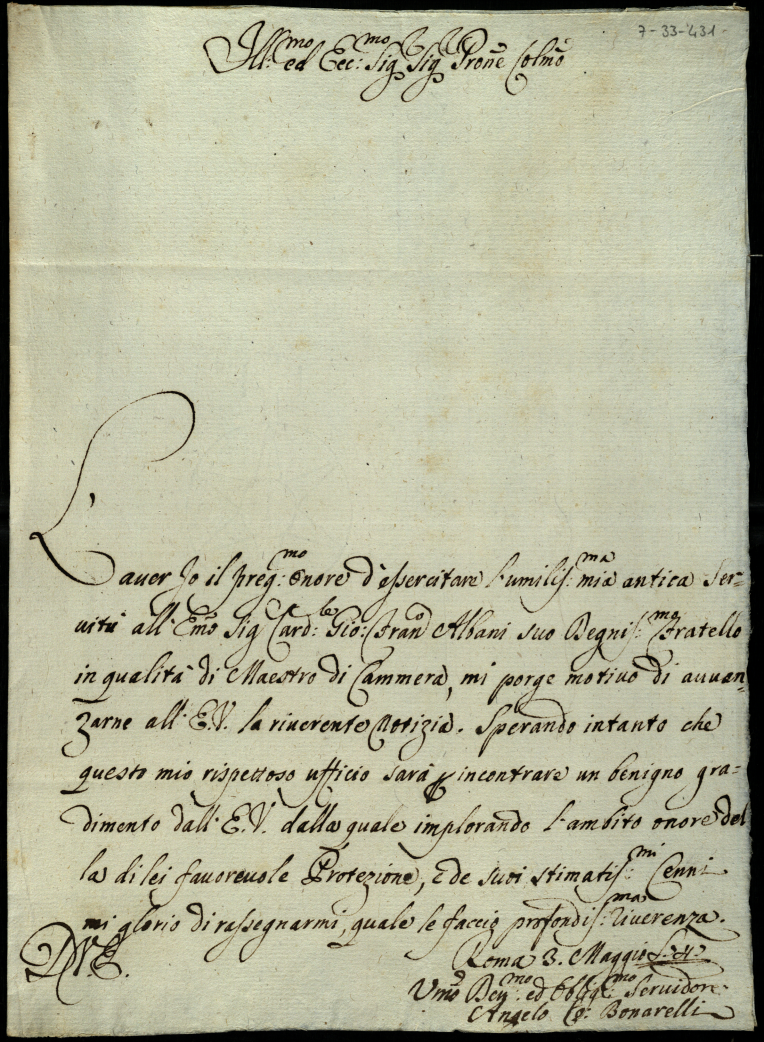 7-33-431
Ill:mo ed Ecc:mo Sig Sig Prone Colmo
L'auer Jo il preg:mo onore d'essercitare l'umilis:ma mia antica Ser=
uitù all'Emo Sig Card:le Gio: Fran Albani suo Degnis:mo Fratello
in qualità di Maestro di Cammera, mi porge motivo di auuan=
zarne all'E.V. la riuerente Notizia. Sperando intanto che
questo mio rispettoso ufficio sarà p incontrare un benigno gra=
dimento dall'E.V. dalla quale implorando l'ambito onore del
la di lei fauoreuole Protezione, e de suoi stimatis:mi Cenni
mi glorio di rassegnarmi, quale le faccio profondis:ma riuerenza.
D V.E.
Roma 3. Maggio
Vmo Deu:mo ed Obblig:mo Seruidore
Angelo Co: Bonarelli